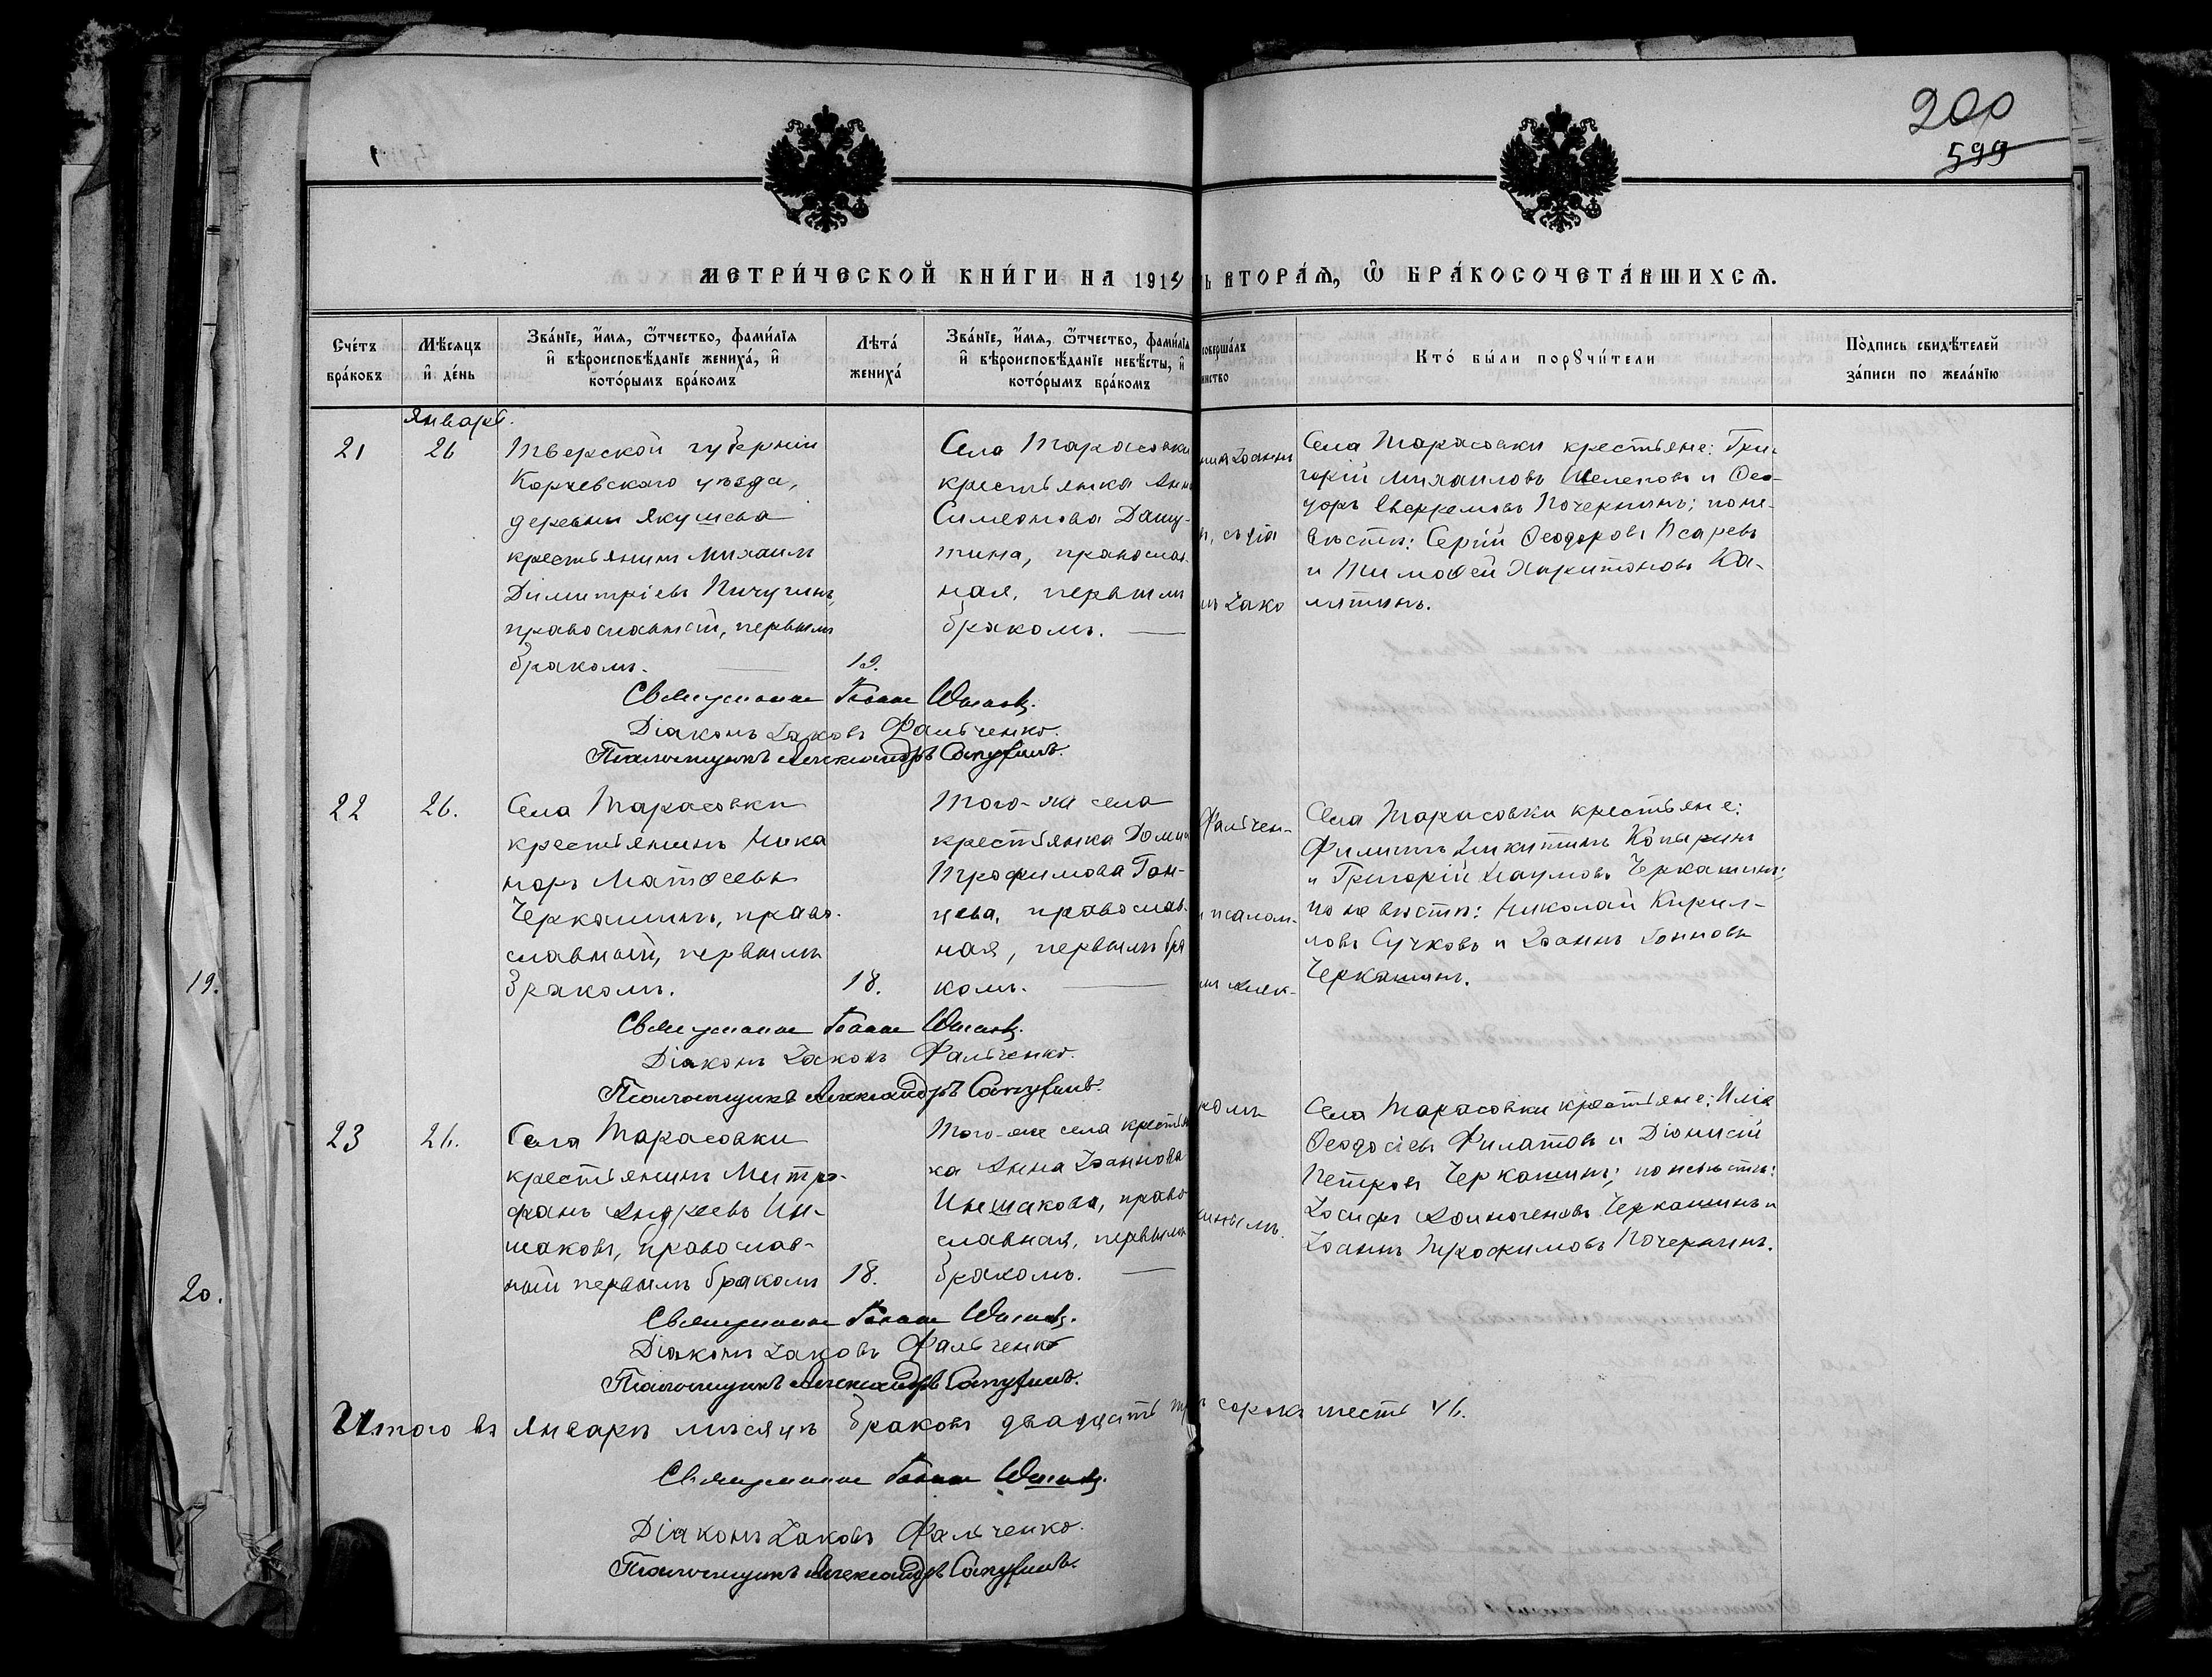 200
599
МЕТРИ́ЧЕСКОЙ КНИ́ГИ НА 1914
Ь ВТОРА́Ѧ, Ѽ БРА́КОСОЧЕТА́ВШИХСѦ.
Сче́тъ бра́ковъ
Мѣ́сяцъ и҆ де́нь
Зва́нїе, и҆́мя, ѻ҆́тчество, фами́лїя и҆ вѣроисповѣ́данїе жениха́, и҆ кото́рымъ бра́комъ
Лѣта́ жениха́
Зва́нїе, и҆́мя, ѻ҆́тчество, фами́лїя и҆ вѣроисповѣ́данїе невѣ́сты, и҆ кото́рымъ бра́комъ
совершáлъ
инство
Кто́ бы́ли порꙋчи́тели
По́дпись свидѣ́телей за́писи по жела́нїю
Января.
21
26
Тверской губерніи
Корчевскаго уѣзда,
деревни Якушева
крестьянинъ Михаилъ
Димитріевъ Пичугинъ,
православный, первымъ
бракомъ.
19.
Села Тарасовки
крестьянка Анн
Симеонова
тина, православ-
ная, первымъ
бракомъ.
Іоаннъ
Іако
Села Тарасовки крестьяне: Гри-
горій Михаиловъ Шелеповъ и Ѳео-
доръ Почернинъ; поне-
вѣстѣ: Сергій Ѳеодоровъ Псаревъ
и Тимоѳей Харитоновъ Ка-
мтинъ.
Священникъ Іоаннъ
Діаконъ Іаковъ Фальченко.
Псаломщикъ Александръ
22
26.
Села Тарасовки
крестьянинъ Ника
норъ Матѳеевъ
Черкашинъ, право-
славный, первымъ
бракомъ.
18.
Того-же села
крестьянка Домн
Трофимова Гон-
чева, православ-
ная, первымъ бра
комъ.
Фальчен-
и псалом-
ъ Алек-
Села Тарасовки крестьяне:
Филиппъ Никитинъ Копыринъ
и Григорій Наумовъ Черкашинъ;
по невѣстѣ: Николай Кирил-
ловъ Сучковъ и Іоаннъ Іонновъ
Черкашинъ.
Священникъ Іоаннъ
Діаконъ Іаковъ Фальченко.
Псаломщикъ Александръ
23
26.
Села Тарасовки
крестьянинъ Митро-
фанъ Андреевъ Ин-
шаковъ, православ-
ный первымъ бракомъ
18.
Того-же села крестьян
ка Анна Іоаннова
Иншакова, право
славная, первымъ
бракомъ.
комъ
инымъ.
Села Тарасовки крестьяне: Илія
Ѳеодосіевъ Филатовъ и Діонисій
Петровъ Черкашинъ; по невѣстѣ:
Іосифъ Черкашинъ и
Іоаннъ Трофимовъ Почернинъ.
Священникъ Іоаннъ
Діаконъ Іаковъ Фальченко
Псаломщикъ Александръ
Итого въ январѣ мѣсяцѣ браковъ двадцать сорокъ шесть 46.
Священникъ Іоаннъ
Діаконъ Іаковъ Фальченко.
Псаломщикъ Александръ
19.
20.